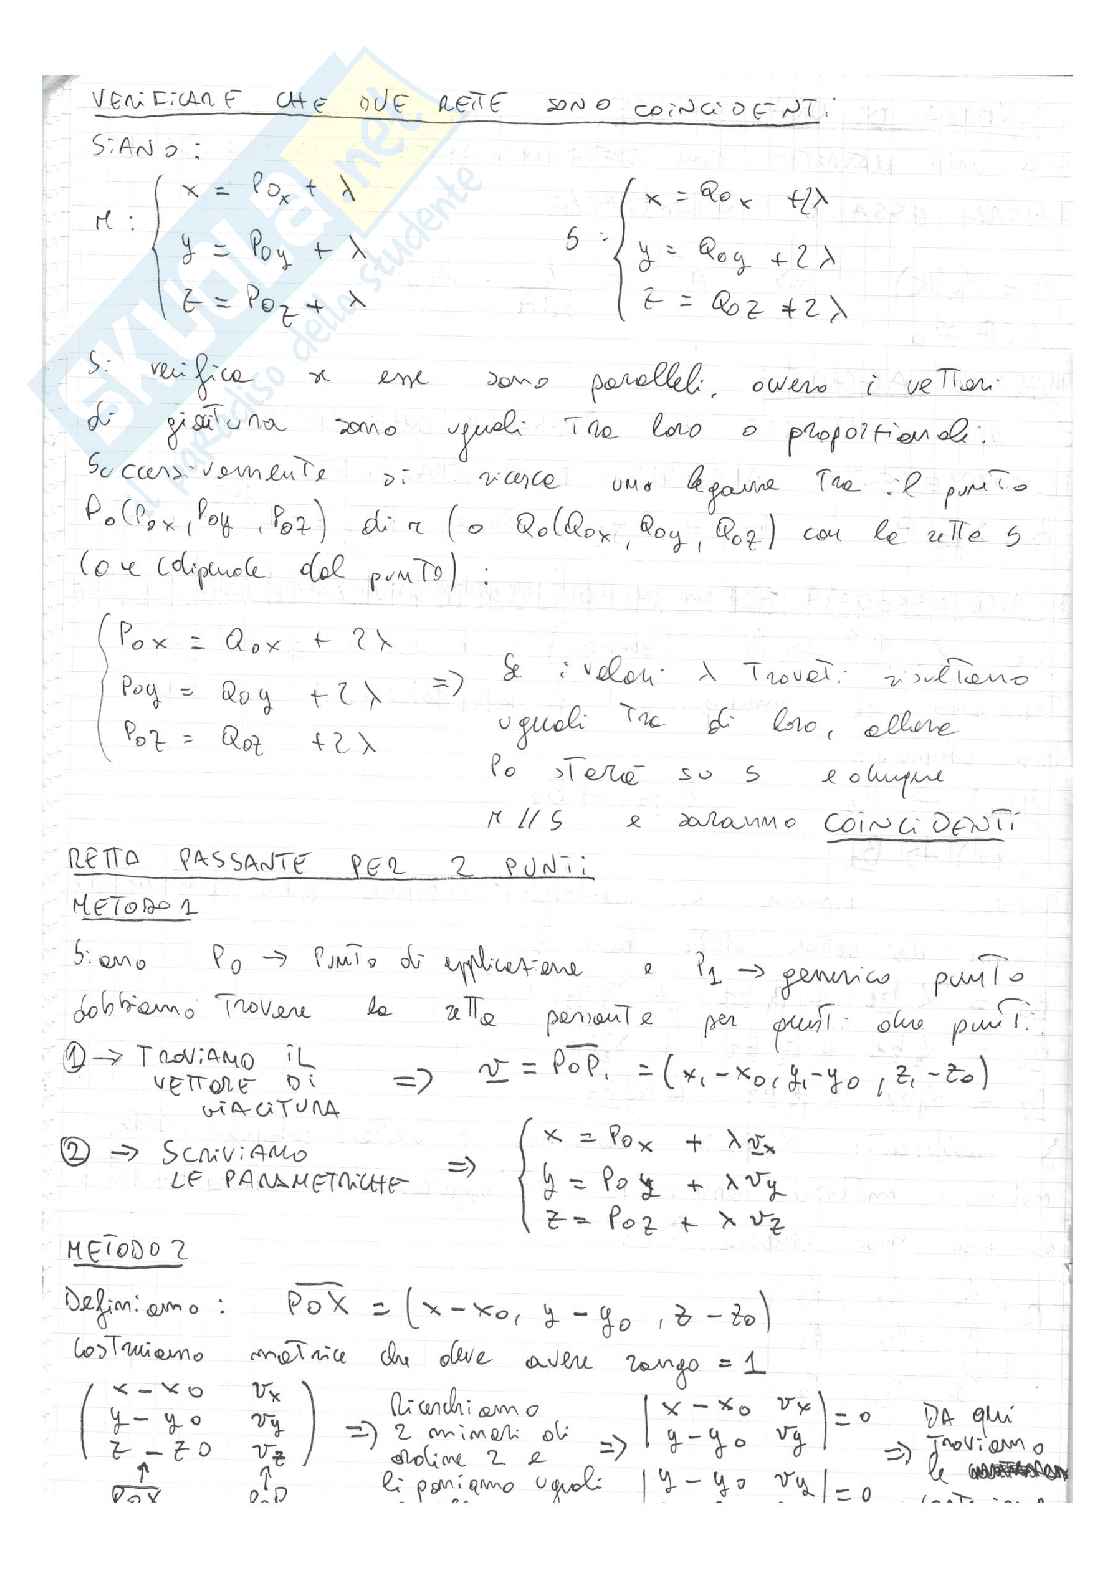 VERIFICARE CHE DUE RETTE SONO COINCIDENTI:
SIANO:
r: { x = P0x + λ
y = P0y + λ
z = P0z + λ
S: { x = Q0x + 2λ
y = Q0y + 2λ
z = Q0z + 2λ
Si verifica se esse sono paralleli, ovvero i vettori
di giacitura sono uguali tra loro o proporzionali.
Successivamente si ricerca uno legame tra il punto
P0(P0x, P0y, P0z) di r (o Q0(Q0x, Q0y, Q0z) con la retta S
(o r (dipende dal punto):
{ P0x = Q0x + 2λ
P0y = Q0y + 2λ
P0z = Q0z + 2λ
=> Se i valori λ trovati risultano
uguali tra di loro, allora
P0 starà su S e dunque
r // S e saranno COINCIDENTI
RETTA PASSANTE PER 2 PUNTI
METODO 1
Siano P0 → Punto di applicazione e P1 → generico punto
dobbiamo trovare la retta passante per questi due punti.
① → TROVIAMO IL
VETTORE DI
GIACITURA
=> v = P0P1 = (x1-x0, y1-y0, z1-z0)
② → SCRIVIAMO
LE PARAMETRICHE
=> { x = P0x + λvx
y = P0y + λvy
z = P0z + λvz
METODO 2
Definiamo: P0X = (x-x0, y-y0, z-z0)
Costruiamo matrice che deve avere rango = 1
( x-x0 vx
y-y0 vy
z-z0 vz )
P0X P0P
=> Ricerchiamo
2 minori di
ordine 2 e
li poniamo uguali
=> | x-x0 vx
y-y0 vy | = 0
| y-y0 vy | = 0
=> DA QUI
TROVIAMO
le
SKUOLA.net
al paradiso dello studente